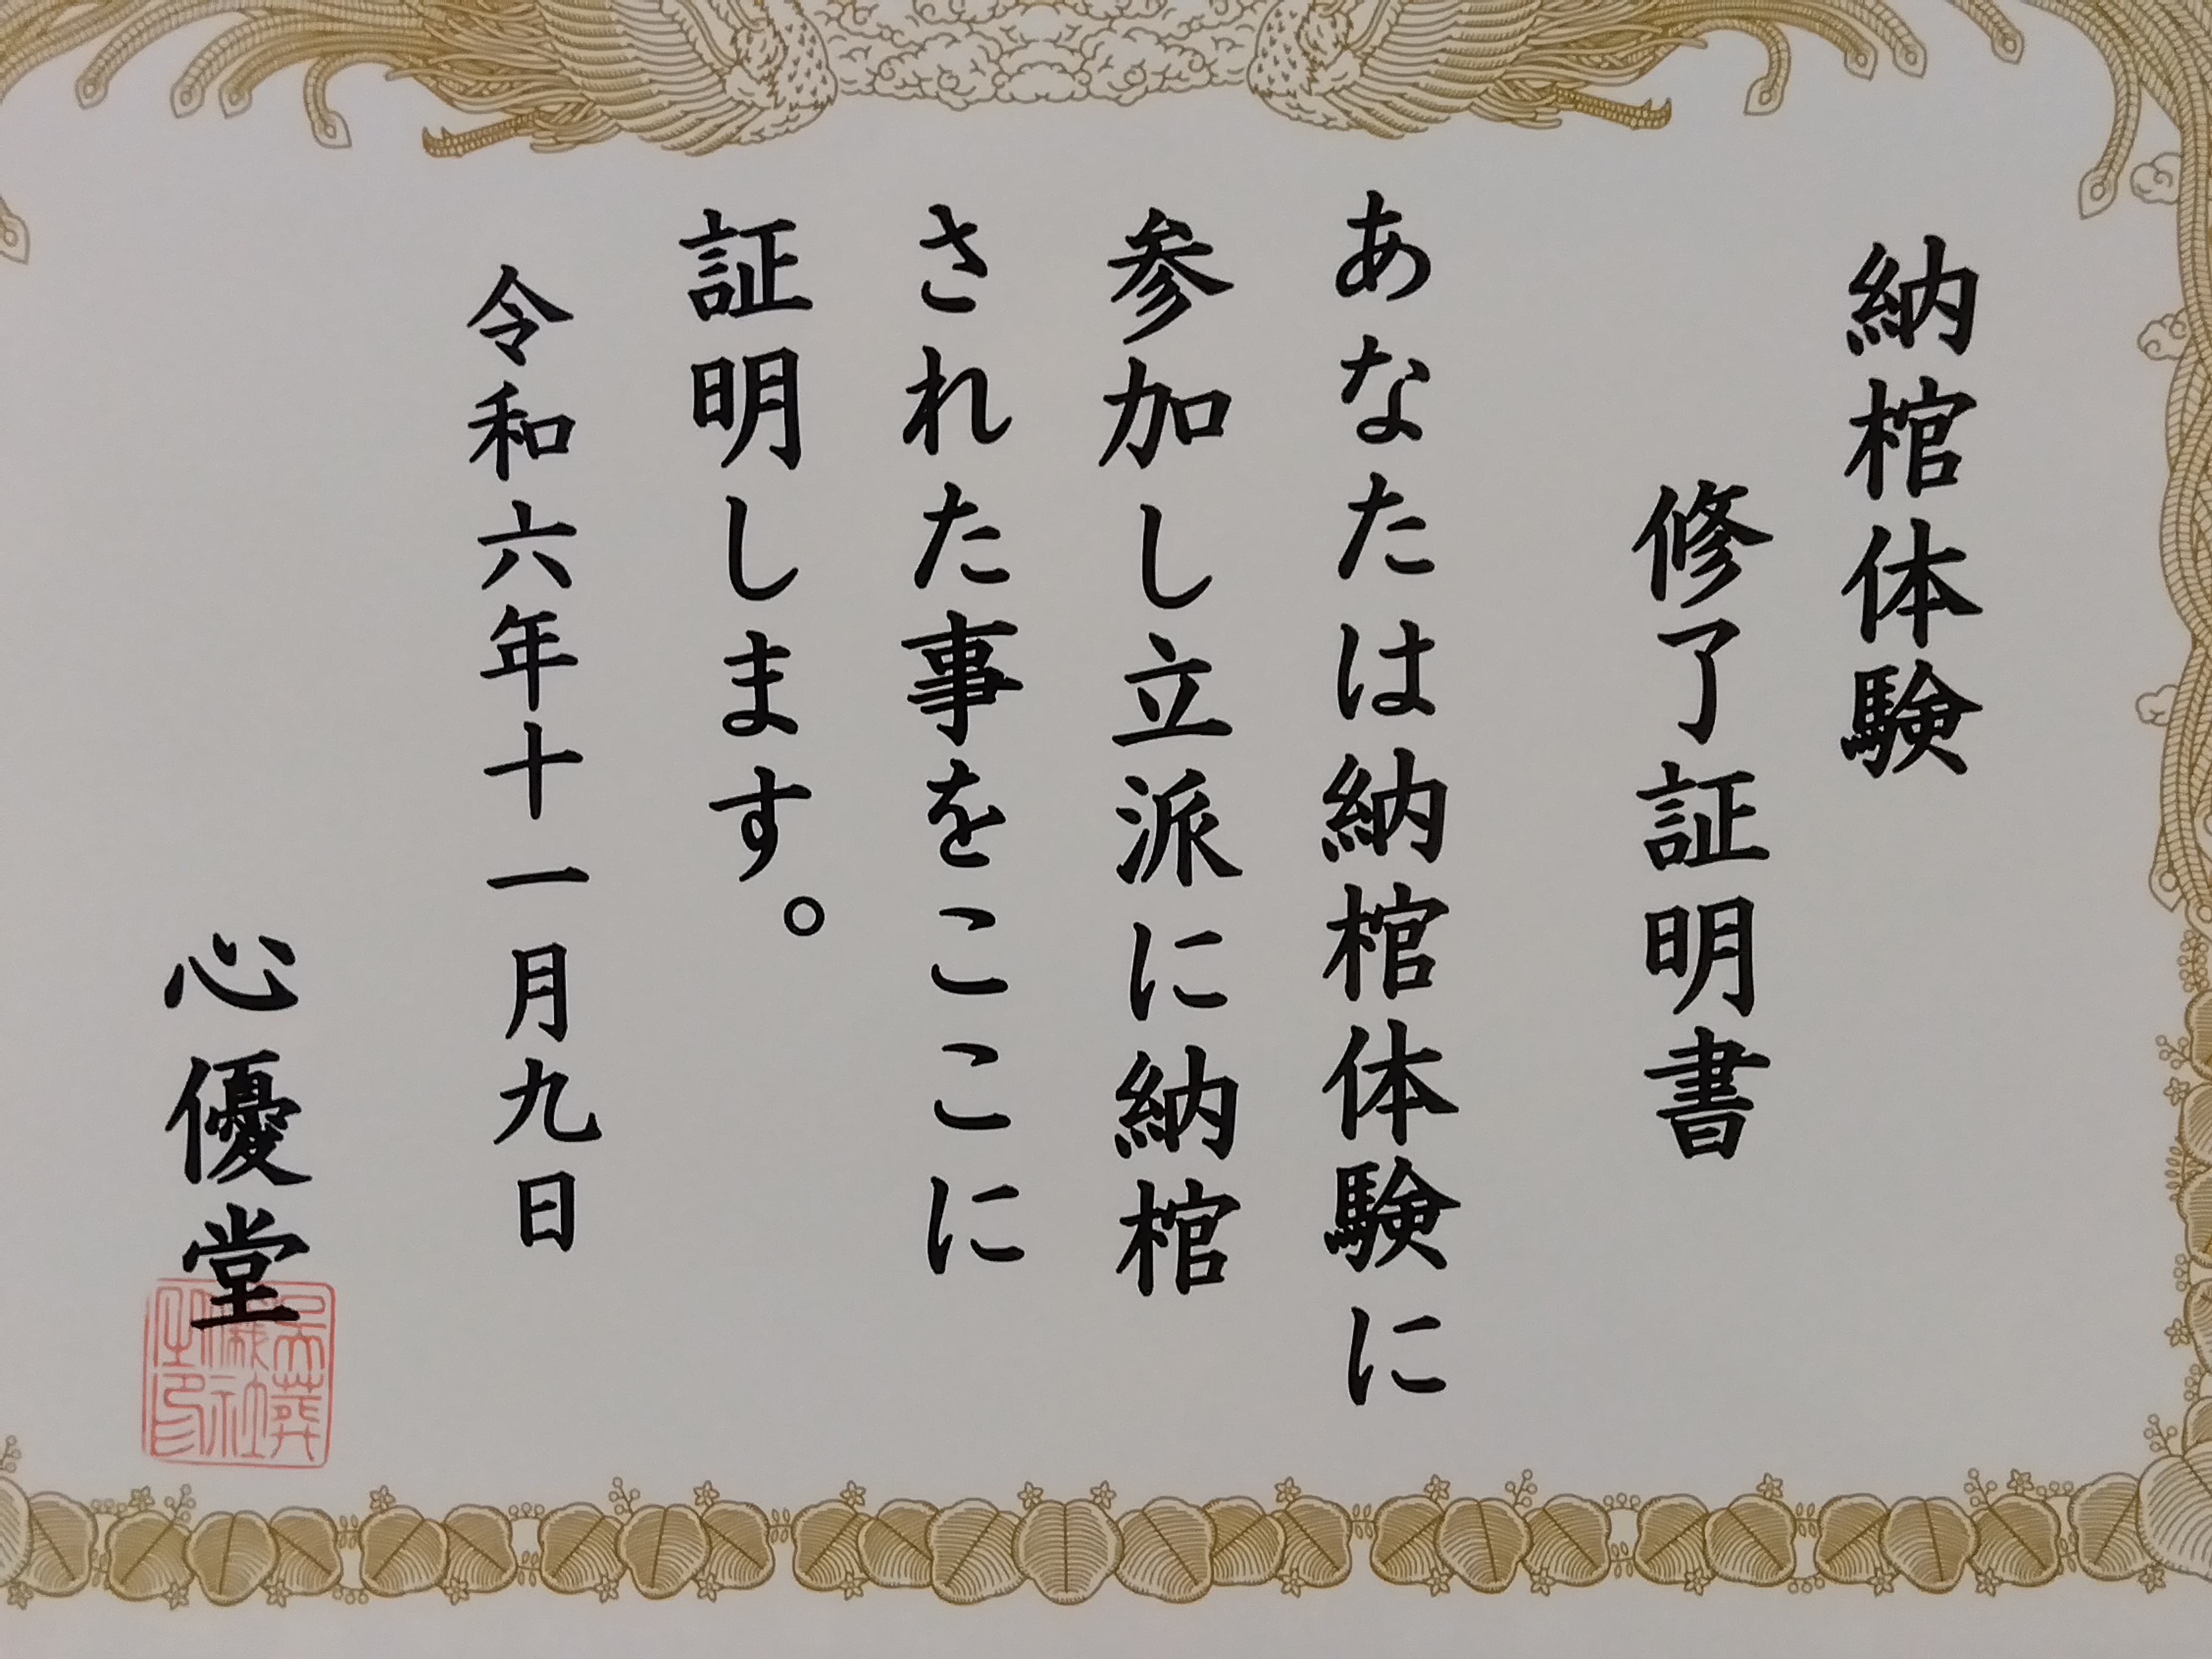 納棺体験
修了証明書
あなたは納棺体験に
参加し立派に納棺
された事をここに
証明します。
令和六年十一月九日
心優堂